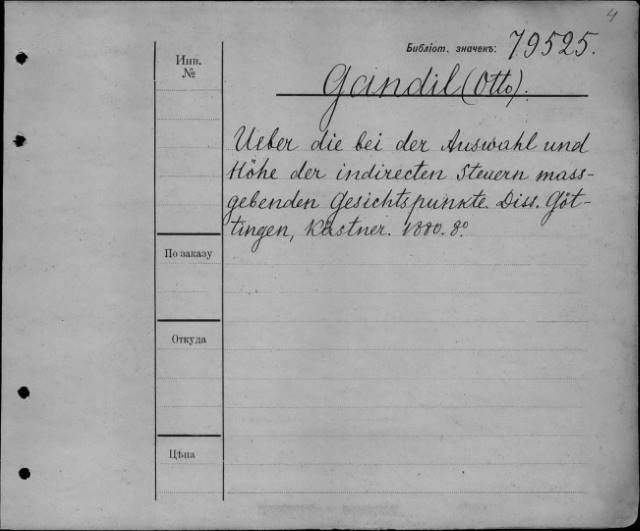 4
Библіот. значекъ: 79525.
Инв.
№
Gandil (Otto).
Ueber die bei der Auswahl und
Höhe der indirecten Steuern mass-
gebenden Gesichtspunkte. Diss. Göt-
tingen, Kästner. 1880. 8º
По заказу
Откуда
Цѣна